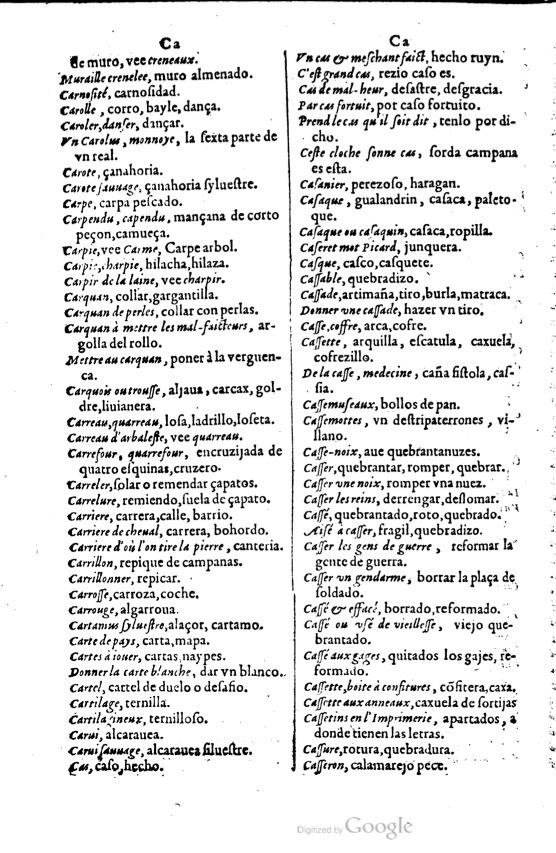 Ca
de muro, vee creneaux.
Muraille crenelee, muro almenado.
Carnosité, carnosidad.
Carolle, corro, bayle, dança.
Caroler, danser, dançar.
Vn Carolus, monnoye, la ſexta parte de
vn real.
Carote, çanahoria.
Carote ſauuage, çanahoria ſylueſtre.
Carpe, carpa peſcado.
Carpendu, capendu, mançana de corto
peçon, camueça.
Carpie, vee Carme, Carpe arbol.
Carpie, charpie, hilacha, hilaza.
Carpir de la laine, vee charpir.
Carquan, collar, gargantilla.
Carquan de perles, collar con perlas.
Carquan à mettre les mal-faicteurs, ar-
golla del rollo.
Mettre au carquan, poner à la verguen-
ca.
Carquois ou trouſſe, aljaua, carcax, gol-
dre, liuianera.
Carreau, quarreau, loſa, ladrillo, loſeta.
Carreau d'arbaleſte, vee quarreau.
Carrefour, quarrefour, encruzijada de
quatro eſquinas, cruzero.
Carreler, ſolar o remendar çapatos.
Carrelure, remiendo, ſuela de çapato.
Carriere, carrera, calle, barrio.
Carriere de cheual, carrera, bohordo.
Carriere d'où l'on tire la pierre, canteria.
Carrillon, repique de campanas.
Carrillonner, repicar.
Carroſſe, carroza, coche.
Carrouge, algarroua.
Cartamus ſylueſtre, alaçor, cartamo.
Carte de pays, carta, mapa.
Cartes à iouer, cartas, naypes.
Donner la carte blanche, dar vn blanco.
Cartel, cartel de duelo o deſafio.
Cartilage, ternilla.
Cartilagineux, ternilloſo.
Carui, alcarauea.
Carui ſauuage, alcarauea ſilueſtre.
Cas, caſo, hecho.
Ca
Vn cas & meſchant faict, hecho ruyn.
C'eſt grand cas, rezio caſo es.
Cas de mal-heur, deſaſtre, deſgracia.
Par cas fortuit, por caſo fortuito.
Prend le cas qu'il ſoit dit, tenlo por di-
cho.
Ceſte cloche ſonne cas, ſorda campana
es eſta.
Caſanier, perezoſo, haragan.
Caſaque, gualandrin, caſaca, paleto-
que.
Caſaque ou caſaquin, caſaca, ropilla.
Caſeret mot Picard, junquera.
Caſque, caſco, caſquete.
Caſſable, quebradizo.
Caſſade, artimaña, tiro, burla, matraca.
Donner vne caſſade, hazer vn tiro.
Caſſe, coffre, arca, cofre.
Caſſette, arquilla, eſcatula, caxuela,
cofrezillo.
De la caſſe, medecine, caña fiſtola, caſ-
ſia.
Caſſemuſeaux, bollos de pan.
Caſſemottes, vn deſtripaterrones, vi-
llano.
Caſſe-noix, aue quebrantanuzes.
Caſſer, quebrantar, romper, quebrar.
Caſſer vne noix, romper vna nuez.
Caſſer les reins, derrengar, deſlomar.
Caſſé, quebrantado, roto, quebrado.
Aiſé à caſſer, fragil, quebradizo.
Caſſer les gens de guerre, reformar la
gente de guerra.
Caſſer vn gendarme, borrar la plaça de
ſoldado.
Caſſé & effacé, borrado, reformado.
Caſſé ou vſé de vieilleſſe, viejo que-
brantado.
Caſſé aux gages, quitados los gajes, re-
formado.
Caſſette, boite à confitures, cõfitera, caxa.
Caſſette aux anneaux, caxuela de ſortijas
Caſſetins en l'Imprimerie, apartados, a
donde tienen las letras.
Caſſure, rotura, quebradura.
Caſſeron, calamarejo pece.
Digitized by Google